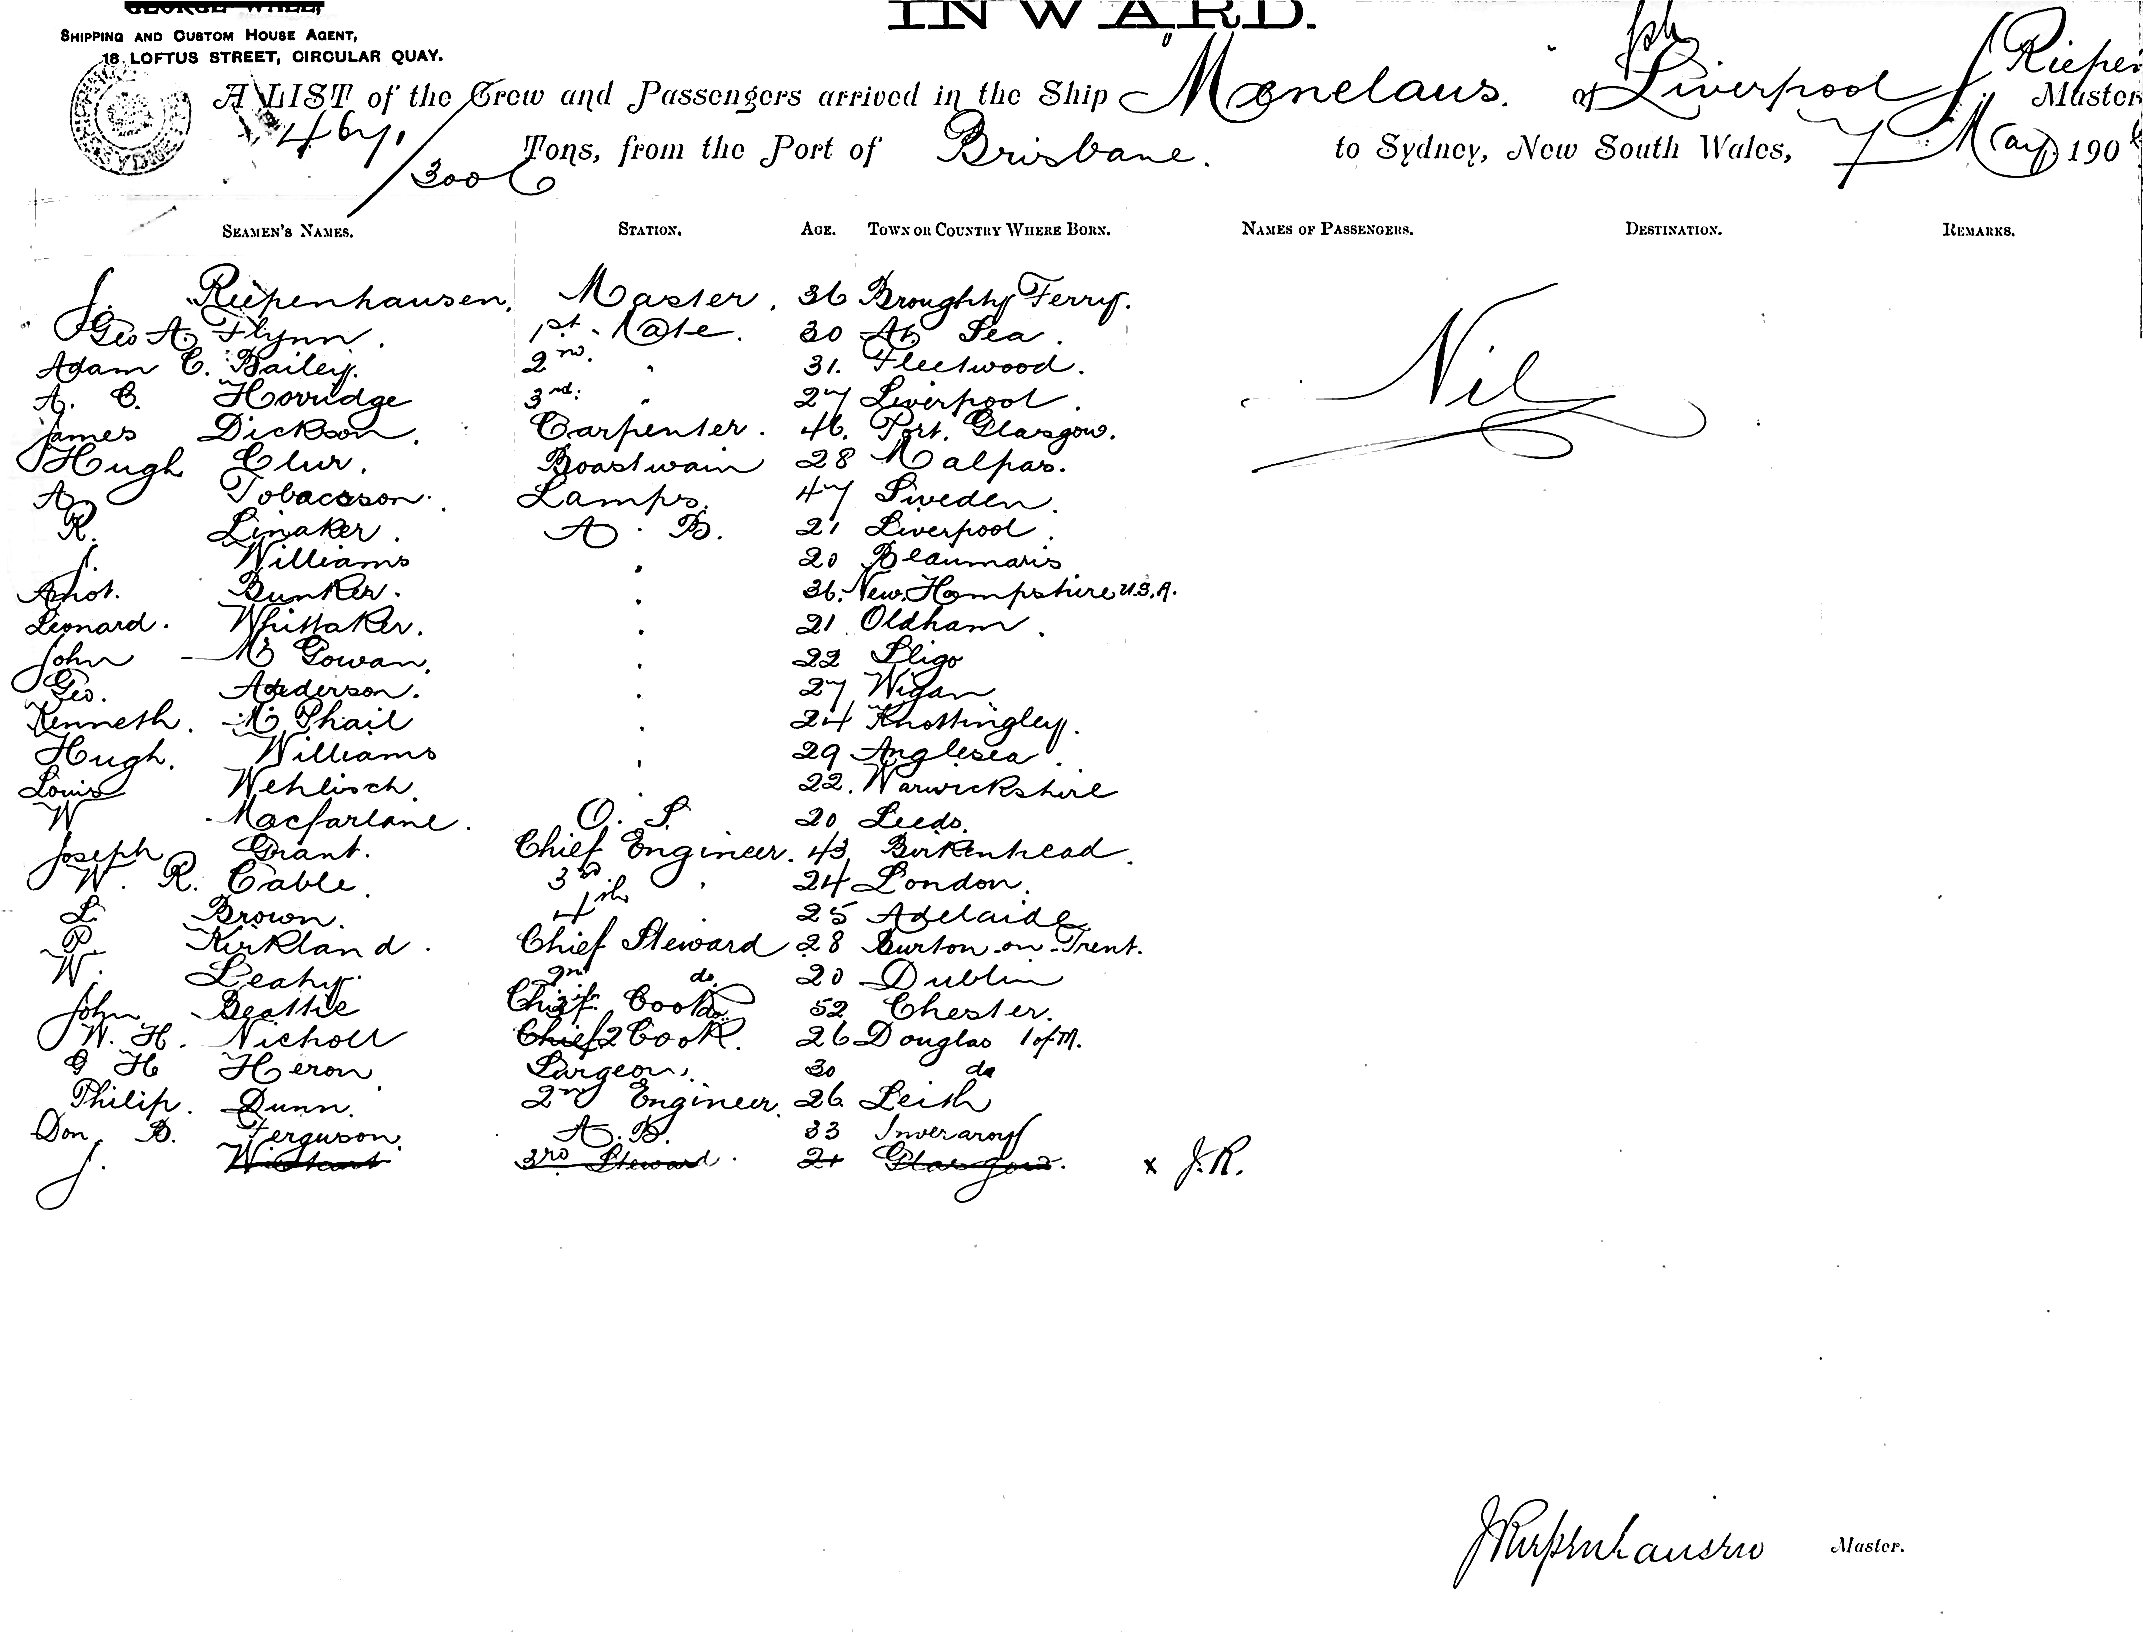 INWARD.
SHIPPING AND CUSTOM HOUSE AGENT,
18, LOFTUS STREET, CIRCULAR QUAY.
A LIST of the Crew and Passengers arrived in the Ship Menelaus. of Liverpool J Riepen Master
Tons, from the Port of Brisbane. to Sydney, New South Wales, 7 May 190
SEAMEN'S NAMES. STATION. AGE. TOWN OR COUNTRY WHERE BORN. NAMES OF PASSENGERS. DESTINATION. REMARKS.
J. Riepenhausen. Master. 36 Broughty Ferry.
Geo A. Flynn. 1st. Mate. 30 At Sea.
Adam C. Bailey. 2nd. " 31. Fleetwood.
A. C. Hovridge 3rd. " 27 Liverpool.
Nil
James Dickson. Carpenter. 46. Port. Glasgow.
Hugh Clur. Boastwain 28 Malpas.
A. Tobacsson. Lamps. 47 Sweden.
R. Linaker. A. B. 21 Liverpool.
J. Williams " 20 Beaumaris.
Bunker. " 36. New Hampshire U.S.A.
Leonard. Whittaker. " 21 Oldham.
John Mc Gowan. " 22 Sligo
Geo. Anderson. " 27 Wigan
Kenneth. Mc Phail " 24 Knottingley.
Hugh. Williams " 29 Anglesea.
Louis Wehlisch. " 22. Warwickshire
W Macfarlane. O. S. 20 Leeds.
Joseph Grant. Chief Engineer. 43 Birkenhead.
W. R. Cable. 3rd " 24 London.
L. Brown. 4th " 25 Adelaide
P. Kirkland. Chief Steward 28 Burton-on-Trent.
W. Leahy. 2nd do. 20 Dublin
John Beattie Chief Cook 52 Chester.
W. H. Nicholl Chief 2 Cook. 26 Douglas I of M.
G H Heron Surgeon. 30 do
Philip. Dunn. 2nd Engineer. 26 Leith
Don. B. Ferguson. A. B. 33 Inveraray
J. Wishart 3rd Steward. 21 Glasgow. x J.R.
J Riepenhausen Master.